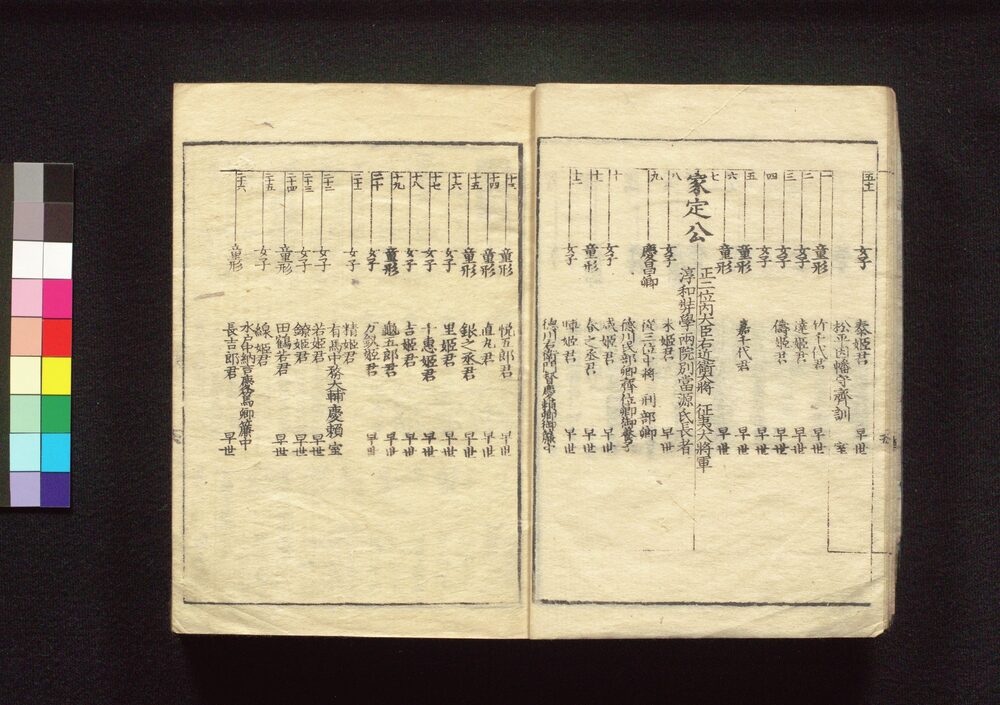 五十三 女子 泰姫君 早世
松平因幡守齊訓 室
一 童形 竹千代君 早世
二 女子 達姫君 早世
三 女子 儔姫君 早世
四 女子 早世
五 童形 嘉千代君 早世
六 童形 早世
七 家定公 正二位内大臣右近衛大將 征夷大將軍
淳和奬學兩院別當源氏長者
八 女子 米姫君 早世
九 慶昌卿 從三位中將 刑部卿
德川式部卿齊位卿御養子
十 女子 咸姫君 早世
十一 童形 春之丞君 早世
十二 女子 暉姫君 早世
德川右衛門督慶賴卿御簾中
十三 童形 悦五郎君 早世
十四 童形 直丸君 早世
十五 童形 銀之丞君 早世
十六 女子 里姫君 早世
十七 女子 千惠姫君 早世
十八 女子 吉姫君 早世
十九 童形 龜五郎君 早世
二十 女子 万釼姫君 早世
二十一 女子 精姫君
有馬中務大輔慶賴 室
二十二 女子 若姫君 早世
二十三 女子 鐐姫君 早世
二十四 童形 田鶴若君 早世
二十五 女子 線姫君
水戸中納言慶篤卿簾中
二十六 童形 長吉郎君 早世